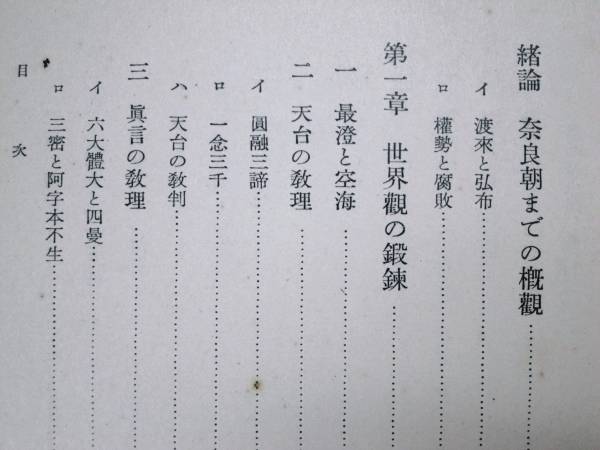 緒論　奈良朝までの槪觀
イ　渡來と弘布
ロ　權勢と腐敗
第一章　世界觀の鍛鍊
一　最澄と空海
二　天台の敎理
イ　圓融三諦
ロ　一念三千
ハ　天台の敎判
三　眞言の敎理
イ　六大體大と四曼
ロ　三密と阿字本不生
目次